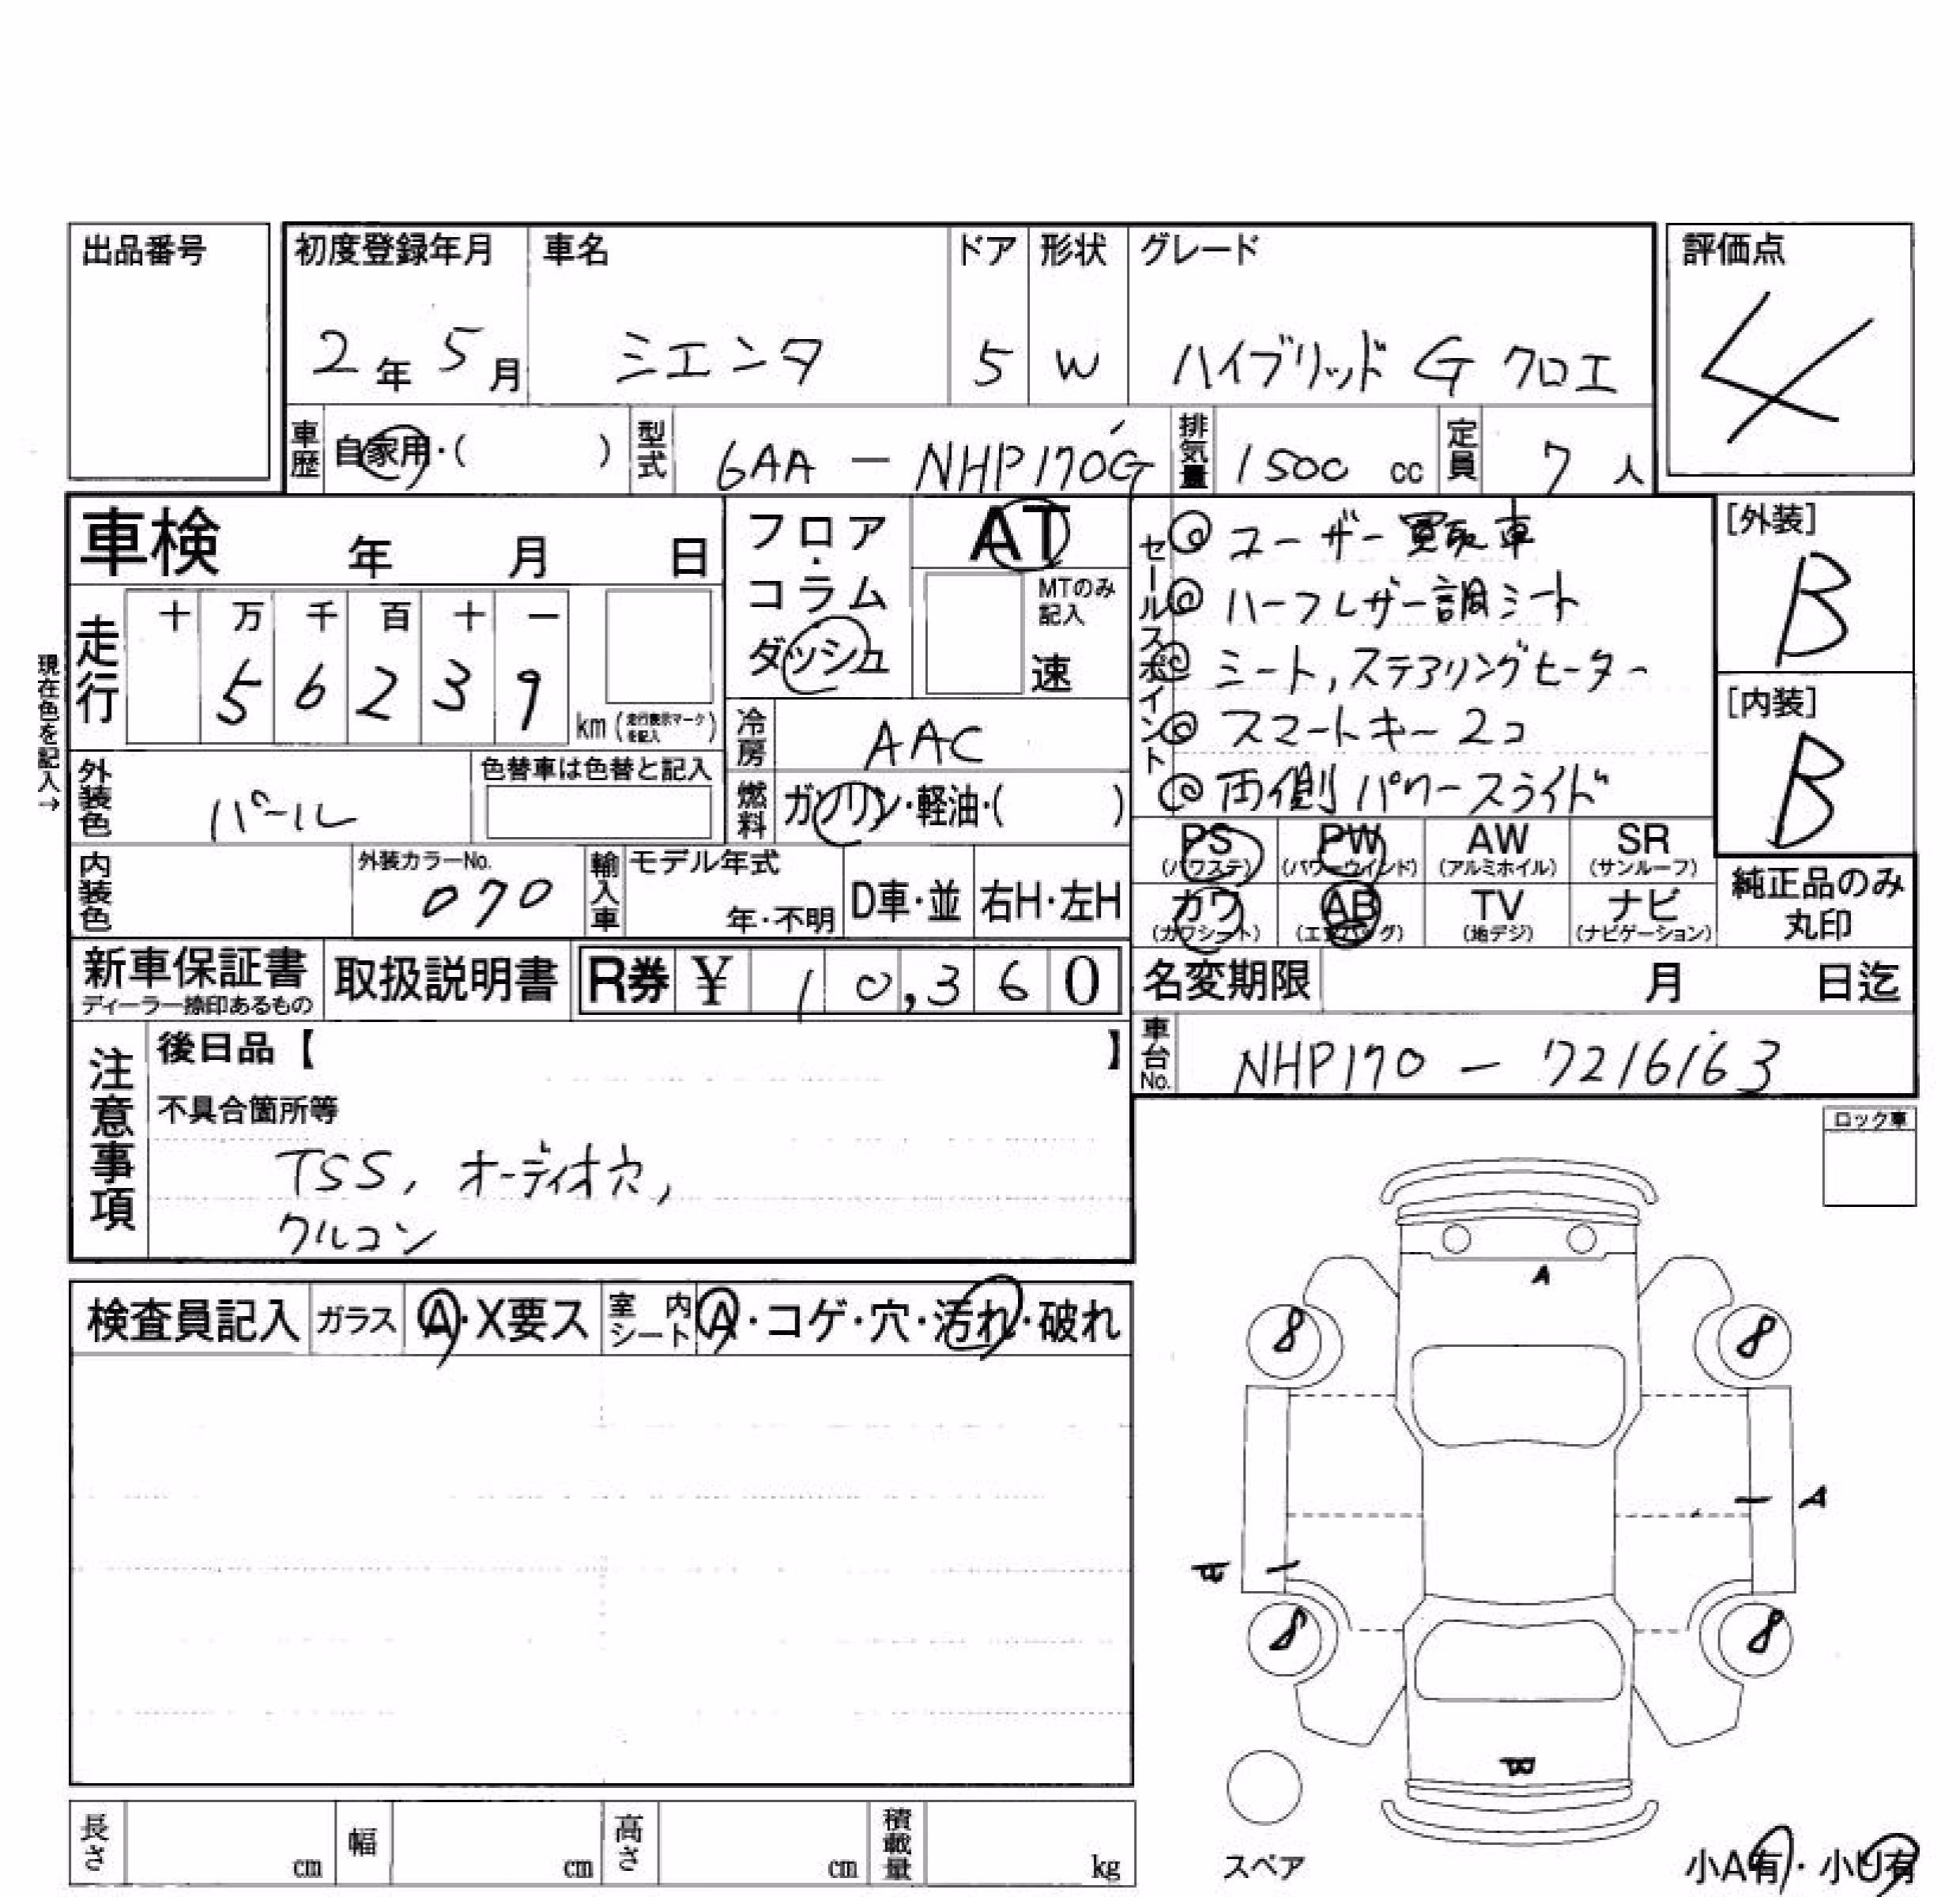 出品番号
初度登録年月 車名 ドア 形状 グレード 評価点
2年 5月 シエンタ 5 W ハイブリッド G クロエ 4
車歴 自家用・( ) 型式 6AA - NHP170G 排気量 1500 cc 定員 7 人
車検 年 月 日
フロア・コラム ダッシュ AT
MTのみ記入
速
セールスポイント
◎ ユーザー買取車
◎ ハーフレザー調シート
◎ シート,ステアリングヒーター
◎ スマートキー 2コ
◎ 両側パワースライド
[外装]
B
[内装]
B
現在色を記入→
走行 十 万 千 百 十 一
5 6 2 3 9
km (走行表示マークを記入)
冷房 AAC
外装色 パール 色替車は色替と記入
燃料 ガソリン・軽油・( )
PS PW AW SR
(パワステ) (パワーウインド) (アルミホイル) (サンルーフ)
カワ AB TV ナビ
(カワシート) (エアバッグ) (地デジ) (ナビゲーション)
純正品のみ
丸印
内装色 外装カラーNo. 070 輸入車 モデル年式 年・不明 D車・並 右H・左H
新車保証書 取扱説明書 R券 ¥ 10,360
ディーラー捺印あるもの
名変期限 月 日迄
車台No. NHP170 - 7216163
注意事項
後日品【 】
不具合箇所等
TSS, オーディオ穴,
クルコン
ロック車
検査員記入 ガラス A・X要ス 室内シート A・コゲ・穴・汚れ・破れ
A
8 8
A
A
8 8
B
スペア
長さ cm 幅 cm 高さ cm 積載量 kg
小A有・小U有